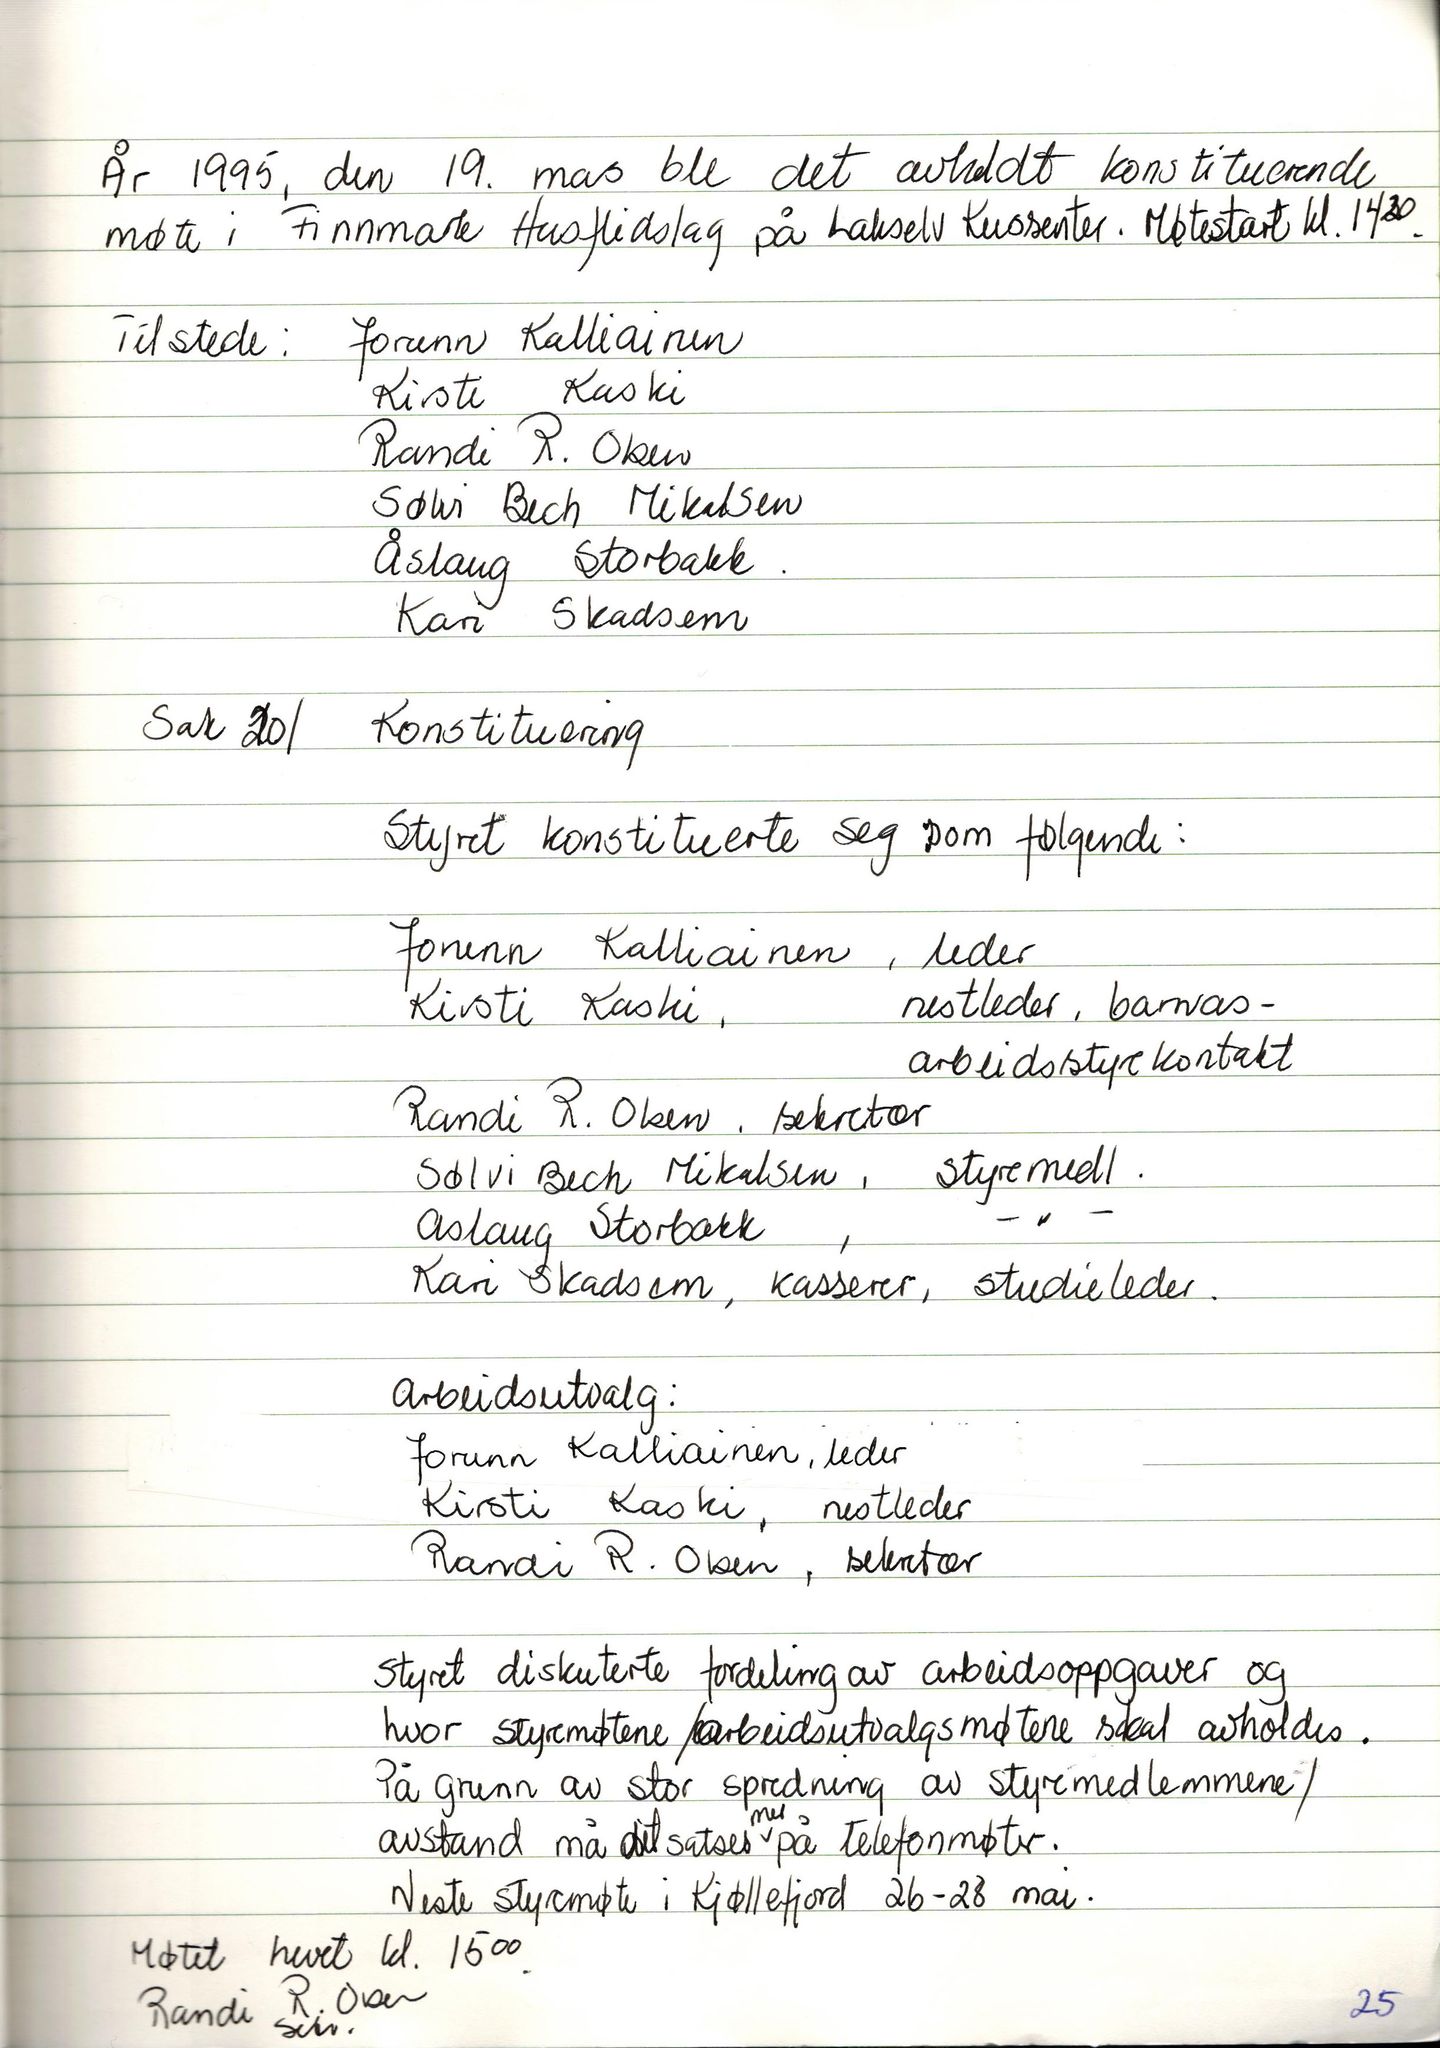 År 1995, den 19. mas ble det avholdt konstituerende
møte i Finnmark Husflidslag på Lakselv Kurssenter. Møtestart kl. 14³⁰.
Tilstede: Jorunn Kalliainen
Kirsti Kaski
Randi R. Olsen
Sølvi Bech Mikalsen
Åslaug Storbakk.
Kari Skadsem
Sak 20/ Konstituering
Styret konstituerte seg som følgende:
Jorunn Kalliainen, leder
Kirsti Kaski, nestleder, barnas-
arbeidsstyrekontakt
Randi R. Olsen, sekretær
Sølvi Bech Mikalsen, styremedl.
Aslaug Storbakk, - " -
Kari Skadsem, kasserer, studieleder.
Arbeidsutvalg:
Jorunn Kalliainen, leder
Kirsti Kaski, nestleder
Randi R. Olsen, sekretær
Styret diskuterte fordeling av arbeidsoppgaver og
hvor styremøtene/arbeidsutvalgsmøtene skal avholdes.
På grunn av stor spredning av styremedlemmene/
avstand må det satses mer på telefonmøter.
Neste styremøte i Kjøllefjord 26-28 mai.
Møtet hevet kl. 15⁰⁰.
Randi R. Olsen
sekr.
25